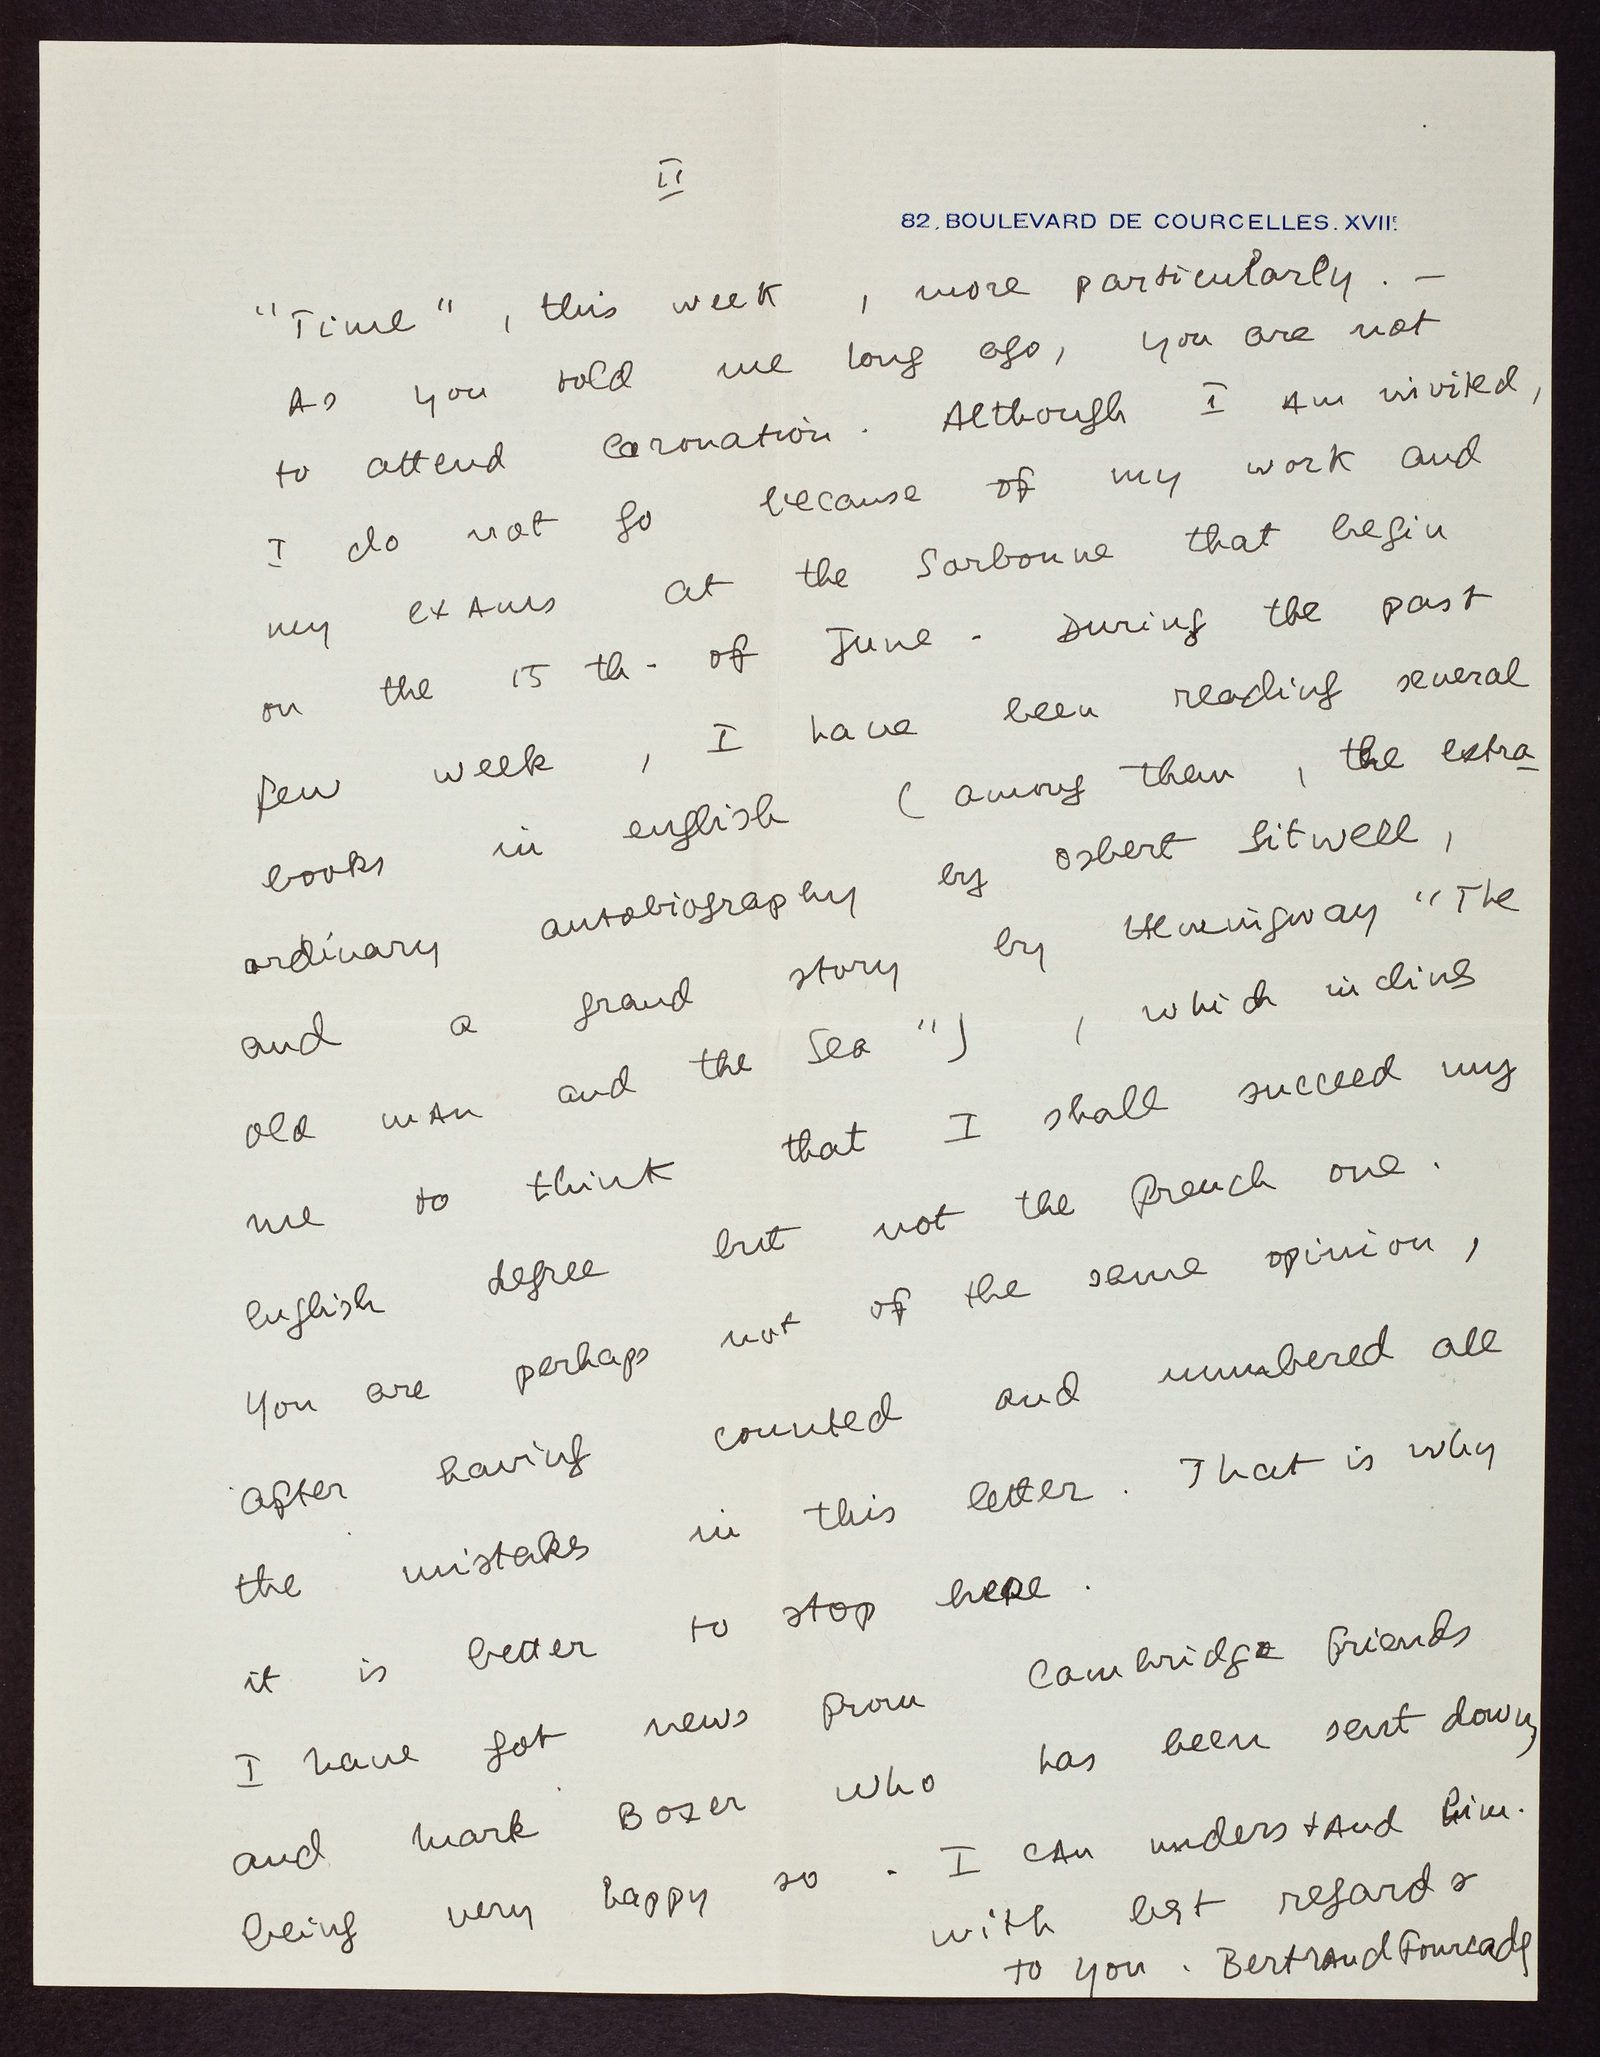 II
82, BOULEVARD DE COURCELLES. XVIIE
"Time", this week, more particularly. –
As you told me long ago, you are not
to attend Coronation. Although I am invited,
I do not go because of my work and
my exams at the Sorbonne that begin
on the 15 th. of June. During the past
few week, I have been reading several
books in english (among them, the extra-
ordinary autobiography by Osbert Sitwell,
and a grand story by Hemingway "The
old man and the Sea"), which inclins
me to think that I shall succeed my
English degree but not the french one.
You are perhaps not of the same opinion,
after having counted and numbered all
the mistakes in this letter. That is why
it is better to stop here.
I have got news from Cambridge friends
and Mark Boxer who has been sent down,
being very happy so. I can understand him.
with best regards
to you. Bertrand Fourcade